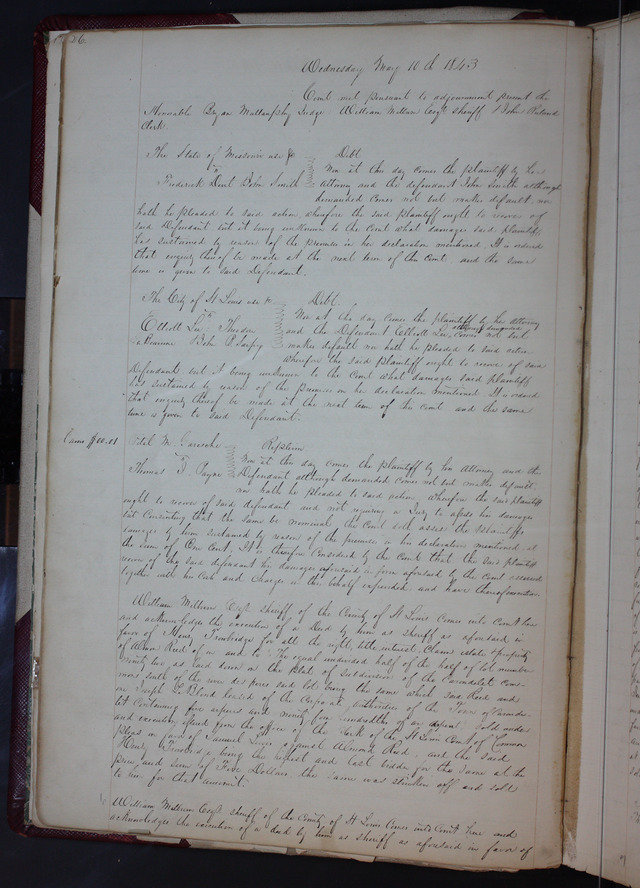 26
Wednesday May 10th 1843
Court met pursuant to adjournment present the
Honorable Bryan Mullanphy Judge William Milburn Esqr. sheriff & John Ruland
Clerk.
The State of Missouri use &c Debt
vs Now at this day comes the plaintiff by her
Frederick Dent John Smith Attorney and the defendant John Smith although
demanded comes not but makes default nor
hath he pleaded to said action, wherefore the said plaintiff ought to recover of
said Defendant but it being unknown to the Court what damages said plaintiff
has sustained by reason of the premises in her declaration mentioned. It is ordered
that enquiry thereof be made at the next term of this Court and the same
time is given to said Defendant.
The City of St Louis use &c Debt.
vs Now at this day comes the plaintiff by her attorney
Elliott Lee, Theodore and the Defendant Elliott Lee although demanded comes not but
makes default nor hath he pleaded to said action
wherefore the said Plaintiff ought to recover of said
Defendants but it being unknown to the Court what damages said plaintiff
has sustained by reason of the premises in her declaration mentioned. It is ordered
that enquiry thereof be made at the next term of this Court and the same
time is given to said Defendant.
$00.01 Vital M. Garesche
vs Now at this day comes the plaintiff by his Attorney and the
Thomas J. Payne Defendant although demanded comes not but makes default
nor hath he pleaded to said action wherefore the said plaintiff
ought to recover of said defendant and not requiring a Jury to assess his damages
but consenting that the same be nominal the Court doth assess the plaintiffs
damages by him sustained by reason of the premises in his declaration mentioned at
the sum of One Cent, It is therefore Considered by the Court that the said plaintiff
recover of the said defendant his damages aforesaid in form aforesaid by the Court assessed
together with his costs and charges in this behalf expended and have thereof execution
William Milburn Esqr. sheriff of the County of St Louis Comes into Court here
and acknowledges the execution of a Deed by him as sheriff as aforesaid in
favor of Henry Trowbridge for all the right, title, interest, Claim estate & property
of Almon Reed of in and to "The equal undivided half of the half of lot number
Twenty two, as laid down on the Plat of subdivision of the Carondelet Com-
mons south of the river des peres said lot being the same which said Reed and
one Joseph Le Blond leased of the Corporate authorities of the Town of Caronde-
let Containing five arpens and ninety four hundredths of an arpent" sold under
and execution issued from the office of the Clerk of the St Louis Court of Common
pleas in favor of Samuel against Almon Reed, and the said
Henry Trowbridge being the highest and last bidder for the same at the
price and sum of Five Dollars, the same was stricken off and sold
to him for that amount.
William Milburn Esqr. sheriff of the County of St Louis Comes into Court here and
acknowledges the execution of a Deed by him as sheriff as aforesaid in favor of